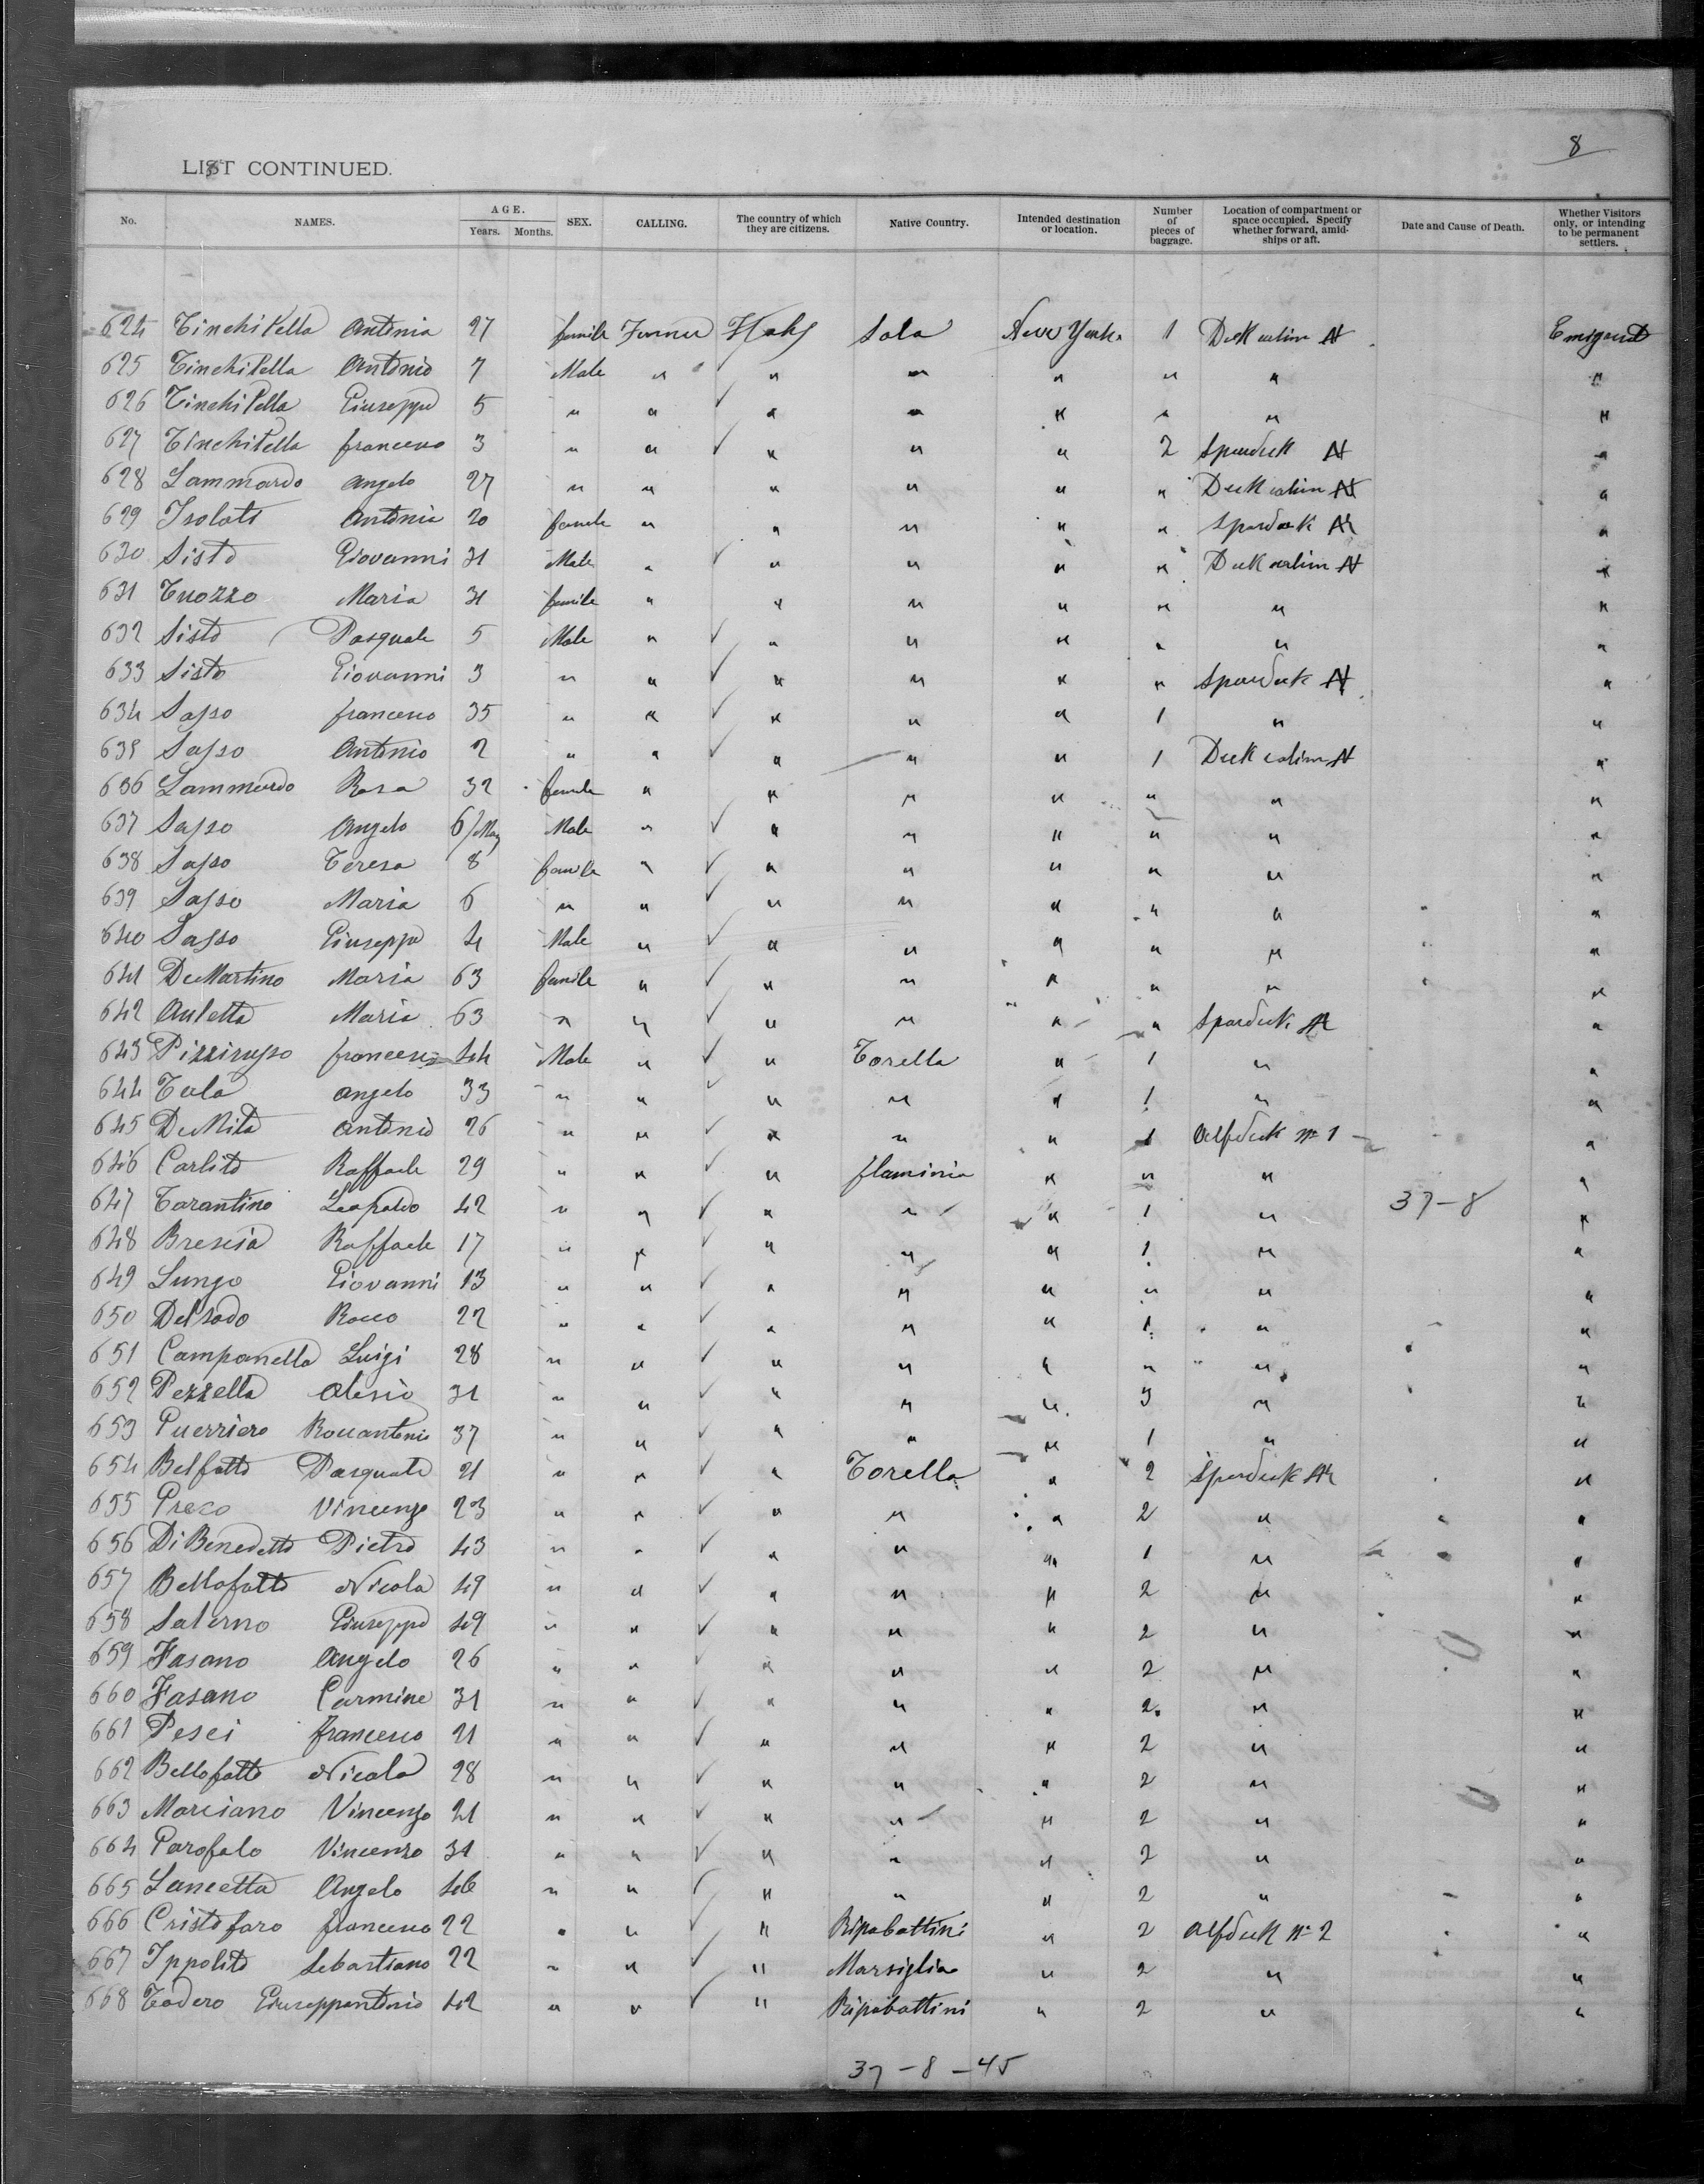 8
LIST CONTINUED.
No. NAMES. AGE. Years. Months. SEX. CALLING. The country of which they are citizens. Native Country. Intended destination or location. Number of pieces of baggage. Location of compartment or space occupied. Specify whether forward, amidships or aft. Date and Cause of Death. Whether Visitors only, or intending to be permanent settlers.
624 Antonia 27 female Farmer Italy Sala New York 1 Emigrant
625 Antonio 7 Male " " " " " " "
626 Giuseppe 5 " " " " " " " "
627 francesco 3 " " " " " 2 Spardeck "
628 Lammardo Angelo 27 " " " " " " "
629 Isolati Antonia 20 female " " " " " Spardeck "
630 Sisto Giovanni 31 Male " " " " " "
631 Tuozzo Maria 31 female " " " " " " "
632 Sisto Pasquale 5 Male " " " " " " "
633 Sisto Giovanni 3 " " " " " " Spardeck "
634 Sasso francesco 35 " " " " " 1 " "
635 Sasso Antonio 2 " " " " " 1 "
636 Lammardo Rosa 32 female " " " " " " "
637 Sasso Angelo 6/ Male " " " " " " "
638 Sasso Teresa 8 female " " " " " " "
639 Sasso Maria 6 " " " " " " " "
640 Sasso Giuseppe 4 Male " " " " " " "
641 DeMartino Maria 63 female " " " " " " "
642 Auletta Maria 63 " " " " " " Spardeck "
643 francesco 44 Male " " Torella " 1 " "
644 Tula Angelo 33 " " " " " 1 " "
645 DeMita Antonio 26 " " " " " 1 Alfdeck No 1 "
646 Carlito Raffaele 29 " " " flaminia " " " "
647 Tarantino Leopoldo 42 " " " " " 1 " 37-8 "
648 Brescia Raffaele 17 " " " " " 1 " "
649 Lungo Giovanni 13 " " " " " " " "
650 Delsado Rocco 22 " " " " " 1 " "
651 Campanella Luigi 28 " " " " " " " "
652 Pezzella Alesio 31 " " " " " 3 " "
653 Guerriero Roccantonio 37 " " " " " 1 " "
654 Belfatto Pasquale 21 " " " Torella " 2 Spardeck "
655 Greco Vincenzo 23 " " " " " 2 " "
656 DiBenedetto Pietro 43 " " " " " 1 " "
657 Bellofatto Nicola 49 " " " " " 2 " "
658 Salerno Giuseppe 49 " " " " " 2 " "
659 Fasano Angelo 26 " " " " " 2 " "
660 Fasano Carmine 31 " " " " " 2 " "
661 Pesci francesco 21 " " " " " 2 " "
662 Bellofatto Nicola 28 " " " " " 2 " "
663 Marciano Vincenzo 21 " " " " " 2 " "
664 Garofalo Vincenzo 31 " " " " " 2 " "
665 Lancetta Angelo 46 " " " " " 2 " "
666 Cristofaro francesco 22 " " " Ripabottini " 2 Alfdeck No 2 "
667 Ippolito Sebastiano 22 " " " Marsiglia " 2 " "
668 Todero Giuseppantonio 42 " " " Ripabottini " 2 " "
37-8-45